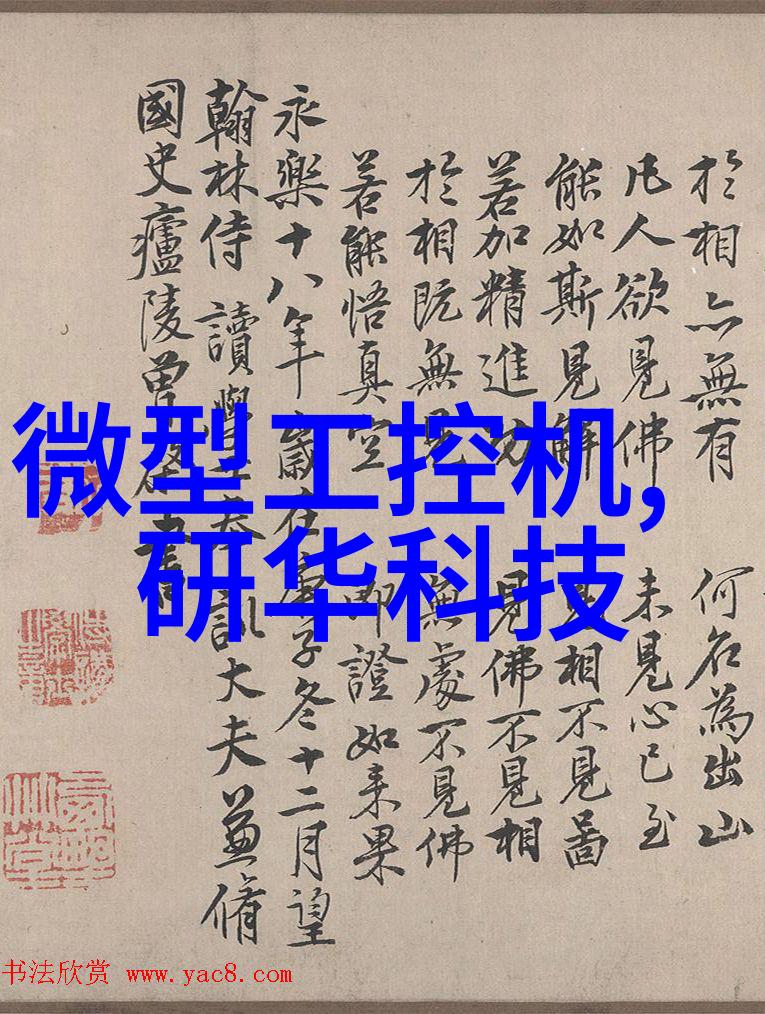 於相亦無有 何名為出山
凡人欲見佛 未見心已至
能如斯見解 見相不見啚
若加精進功 見佛不見相
於相既無見 無處不見佛
若能悟真空 即證如来果
永樂十八年歲在庚子冬十二月望
翰林侍讀學士奉訓大夫兼脩
國史廬陵曾書
微型工控机,
研华科技
书法欣赏 www.yac8.com